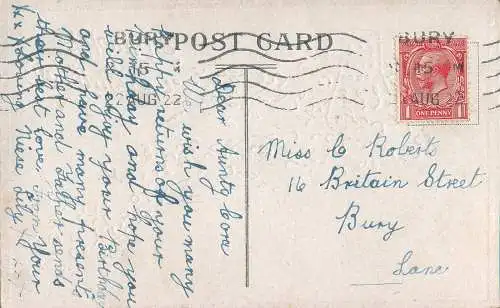 POST CARD
BURY
15 M
22 AUG 22
BURY
15 M
22 AUG 22
ONE PENNY
Dear Aunty Cora
We wish you many
happy returns of your
Birthday and hope you
will enjoy your Birthday
and have many presents
Mother and Father sends
their best love, from Your
loving Niese Lily
Miss C Roberts
16 Britain Street
Bury
Lanc